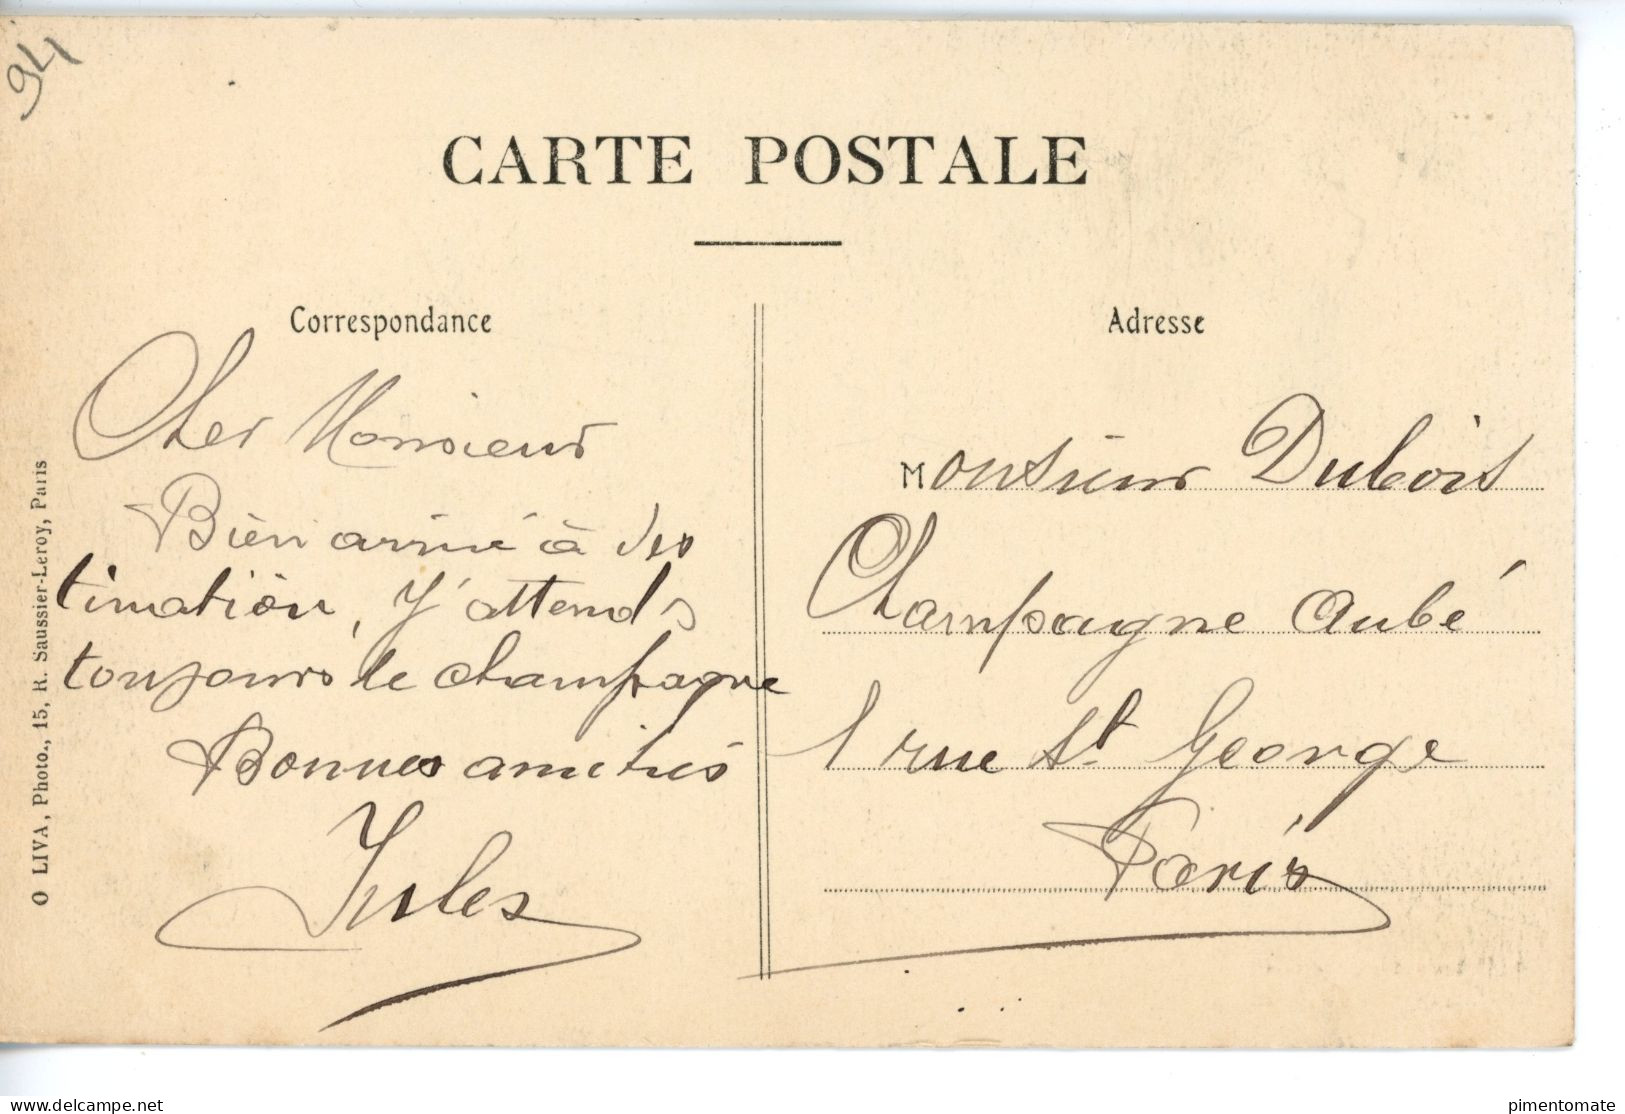 94
CARTE POSTALE
Correspondance
Cher Monsieur
Bien arrivé à des
timation, J'attends
toujours le champagne
Bonnes amitiés
Jules
Adresse
Monsieur Dubois
Champagne Aubé
1 rue St George
Paris
O LIVA, Photo., 15, R. Saussier-Leroy, Paris
www.delcampe.net
pimentomate